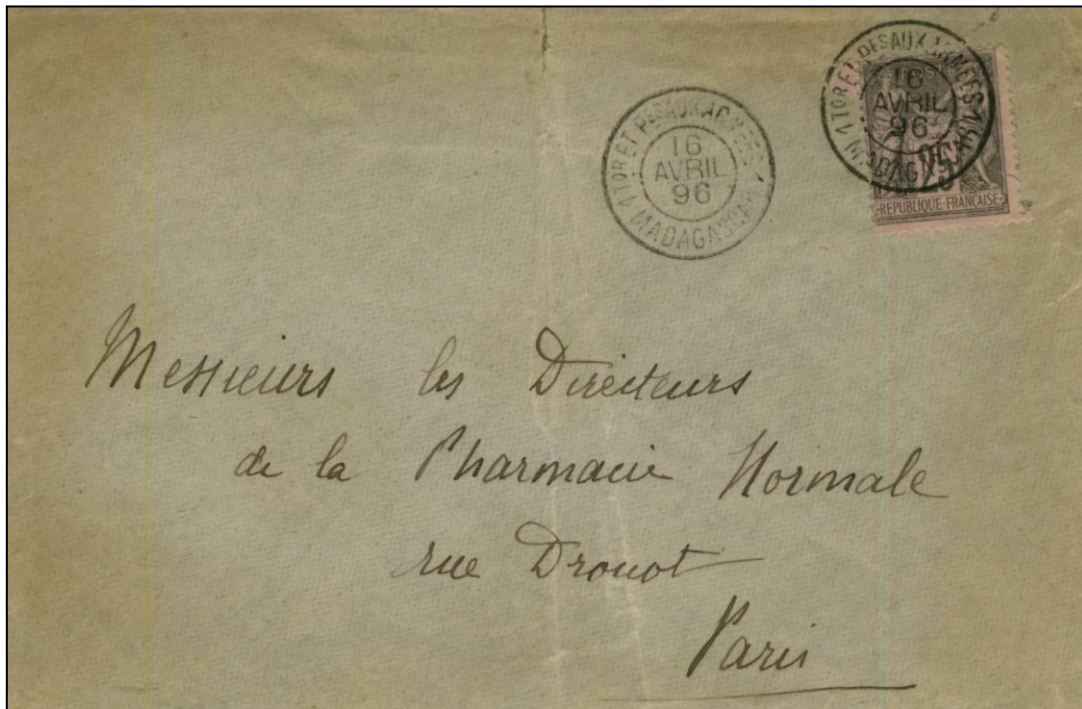 TOR ET PES AUX ARMEES
16
AVRIL
96
MADAGASCAR
TOR ET PES AUX ARMEES
16
AVRIL
96
MADAGASCAR
25
REPUBLIQUE FRANÇAISE
Messieurs les Directeurs
de la Pharmacie Normale
rue Drouot
Paris